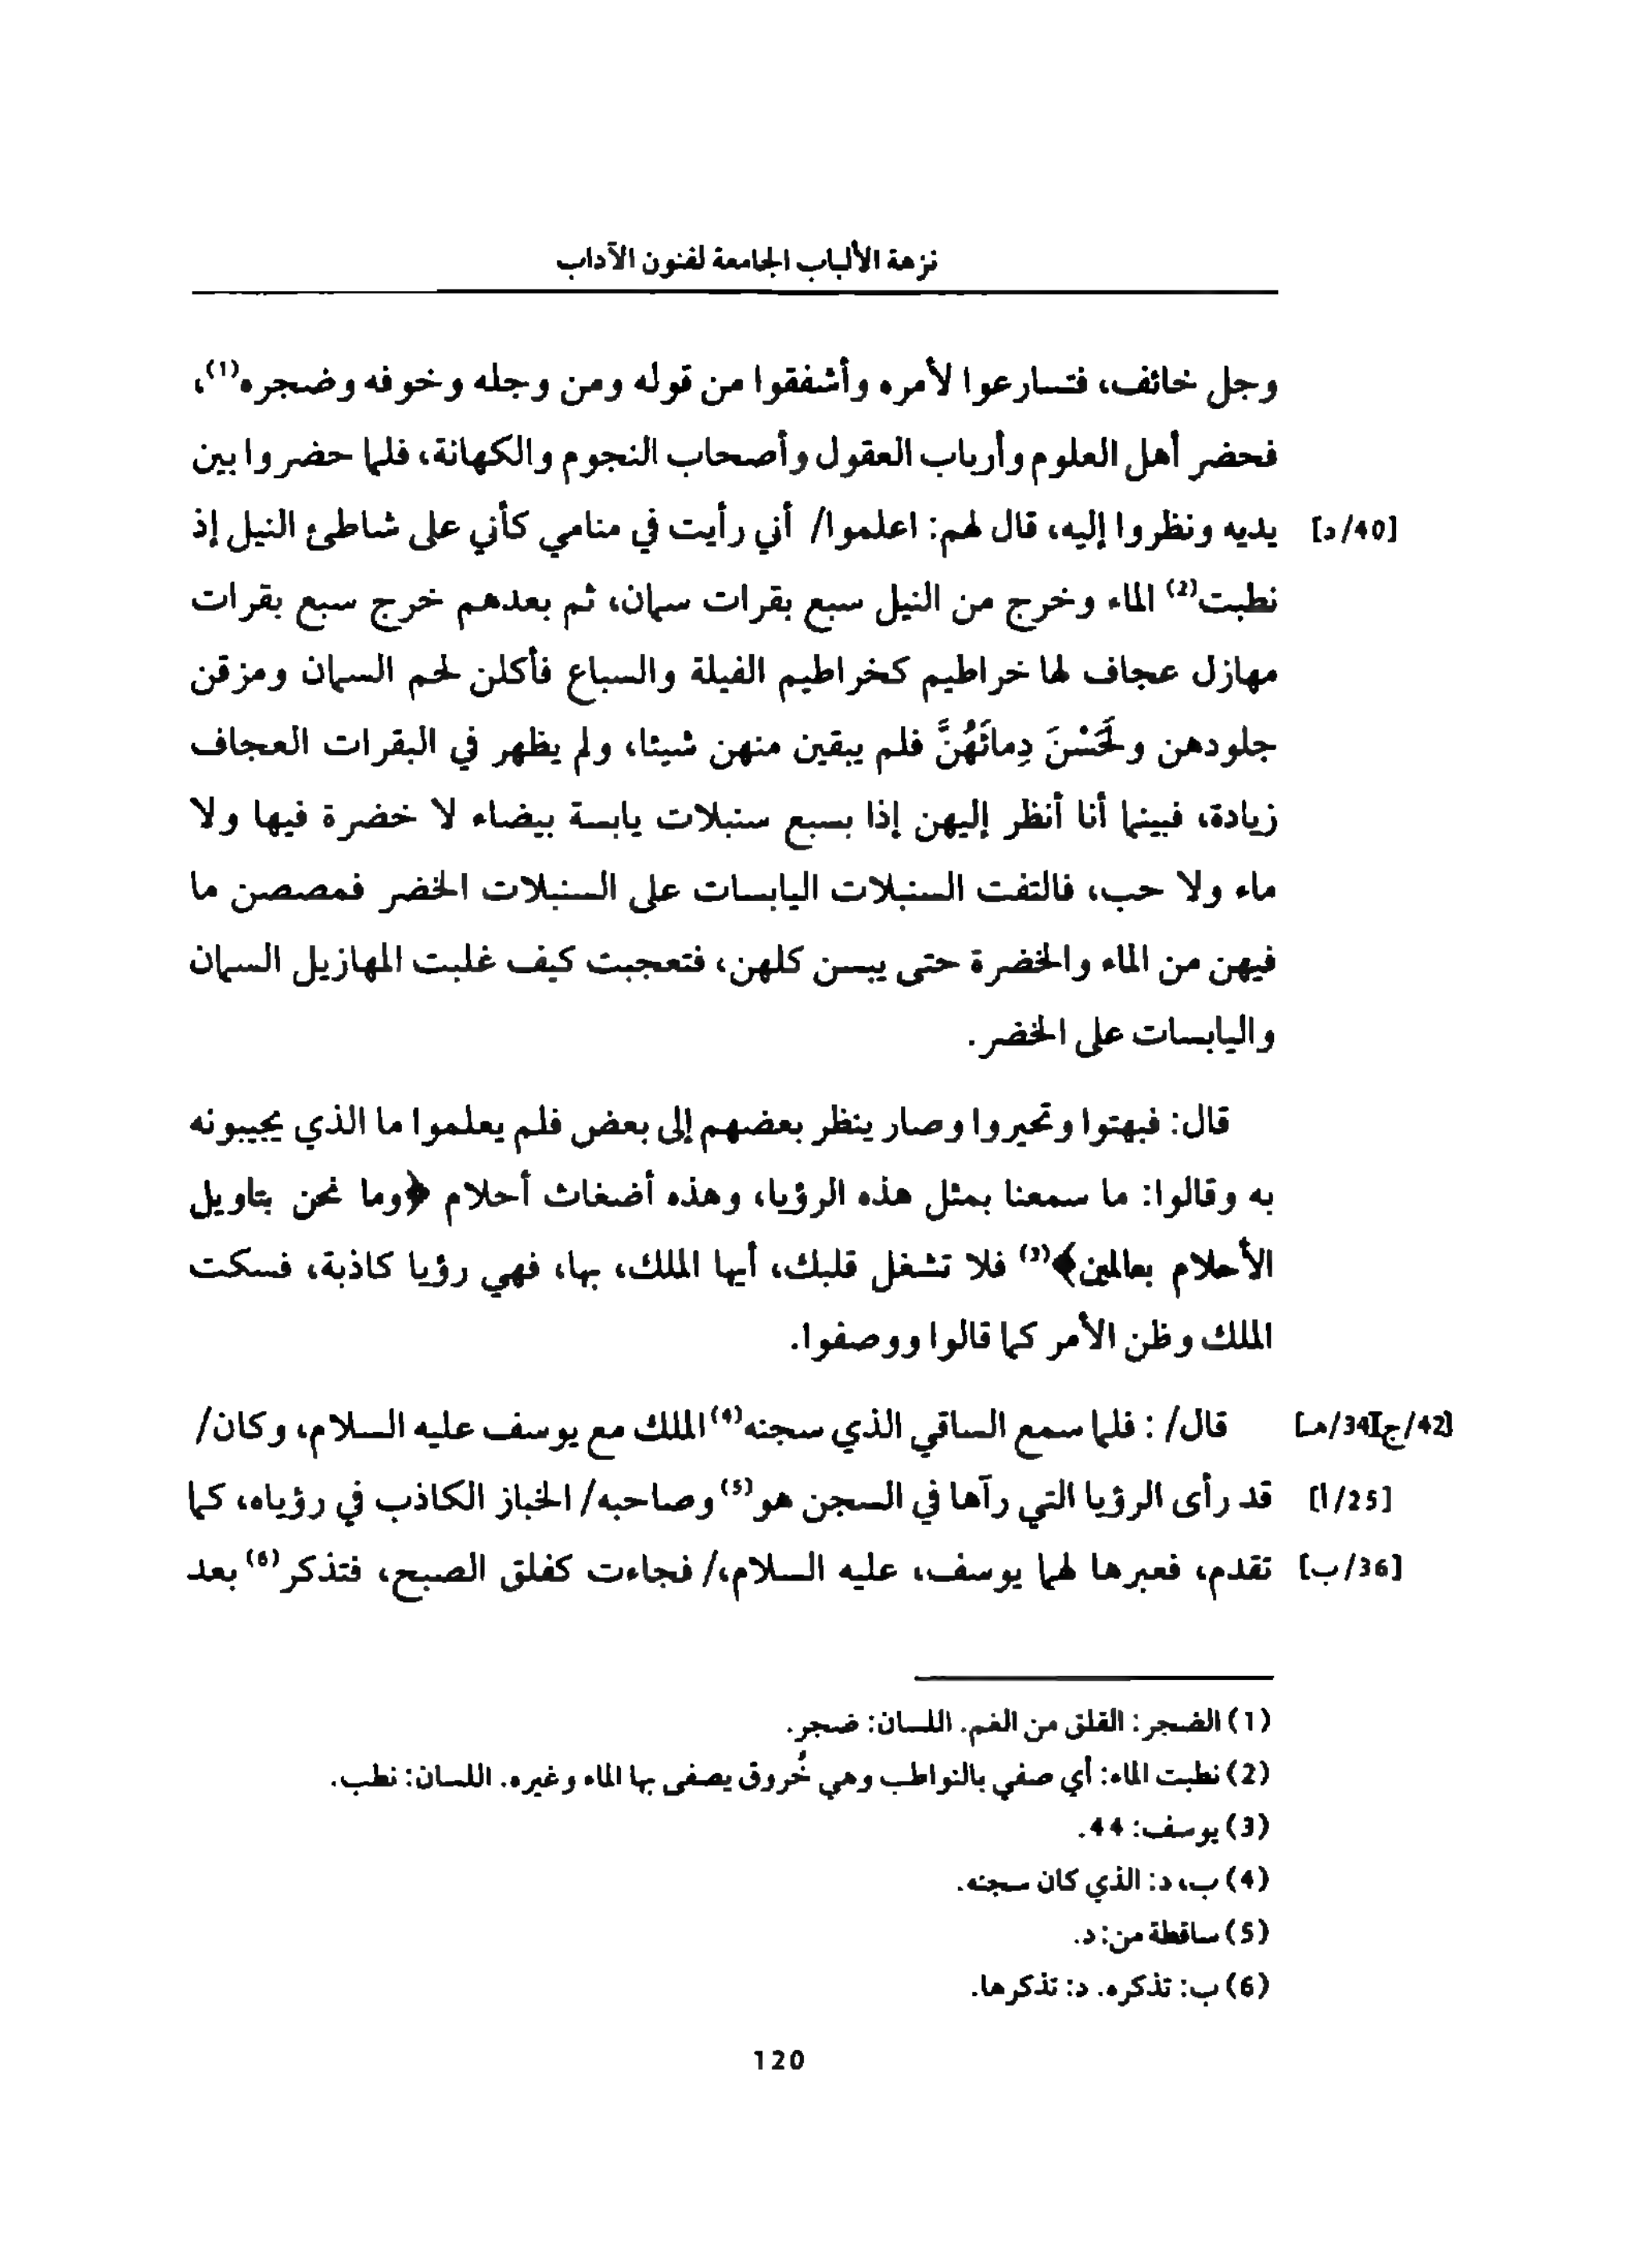 نزهة الألباب الجامعة لفنون الآداب
وجل خائف، فتسارعوا لأمره وأشفقوا من قوله ومن وجله وخوفه وضجره(1)،
فحضر أهل العلوم وأرباب العقول وأصحاب النجوم والكهانة، فلما حضروا بين
[40/د] يديه ونظروا إليه، قال لهم: اعلموا/ أني رأيت في منامي كأني على شاطئ النيل إذ
نطبت(2) الماء وخرج من النيل سبع بقرات سمان، ثم بعدهم خرج سبع بقرات
مهازل عجاف لها خراطيم كخراطيم الفيلة والسباع فأكلن لحم السمان ومزقن
جلودهن ولَحَسْنَ دِمائَهُنَّ فلم يبقين منهن شيئا، ولم يظهر في البقرات العجاف
زيادة، فبينما أنا أنظر إليهن إذا بسبع سنبلات يابسة بيضاء لا خضرة فيها ولا
ماء ولا حب، فالتفت السنبلات اليابسات على السنبلات الخضر فمصصن ما
فيهن من الماء والخضرة حتى يبسن كلهن، فتعجبت كيف غلبت المهازيل السمان
واليابسات على الخضر.
قال: فبهتوا وتحيروا وصار ينظر بعضهم إلى بعض فلم يعلموا ما الذي يجيبونه
به وقالوا: ما سمعنا بمثل هذه الرؤيا، وهذه أضغاث أحلام ﴿وما نحن بتاويل
الأحلام بعالمين﴾(3) فلا تشغل قلبك، أيها الملك، بها، فهي رؤيا كاذبة، فسكت
الملك وظن الأمر كما قالوا ووصفوا.
[42/ج][34/هـ] قال/ : فلما سمع الساقي الذي سجنه(4) الملك مع يوسف عليه السلام، وكان/
[25/أ] قد رأى الرؤيا التي رآها في السجن هو(5) وصاحبه/ الخباز الكاذب في رؤياه، كما
[36/ب] تقدم، فعبرها لهما يوسف، عليه السلام،/ فجاءت كفلق الصبح، فتذكر(6) بعد
(1) الضجر: القلق من الغم. اللسان: ضجر.
(2) نطبت الماء: أي صفي بالنواطب وهي خُروق يصفى بها الماء وغيره. اللسان: نطب.
(3) يوسف: 44.
(4) ب، د: الذي كان سجنه.
(5) ساقطة من: د.
(6) ب: تذكره. د: تذكرها.
120